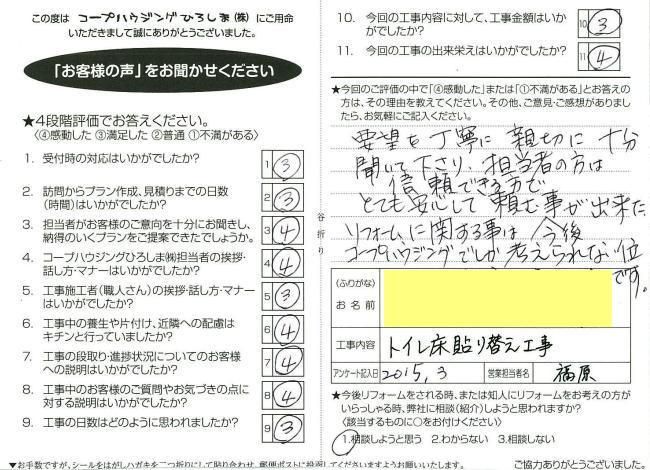 この度は コープハウジングひろしま(株) にご用命
いただきまして誠にありがとうございました。
「お客様の声」をお聞かせください
★4段階評価でお答えください。
〈④感動した ③満足した ②普通 ①不満がある〉
1. 受付時の対応はいかがでしたか?
1 3
2. 訪問からプラン作成、見積りまでの日数
(時間)はいかがでしたか?
2 3
3. 担当者がお客様のご意向を十分にお聞きし、
納得のいくプランをご提案できたでしょうか。
3 4
4. コープハウジングひろしま㈱担当者の挨拶・
話し方・マナーはいかがでしたか?
4 4
5. 工事施工者(職人さん)の挨拶・話し方・マナー
はいかがでしたか?
5 3
6. 工事中の養生や片付け、近隣への配慮は
キチンと行っていましたか?
6 4
7. 工事の段取り・進捗状況についてのお客様
への説明はいかがでしたか?
7 4
8. 工事中のお客様のご質問やお気づきの点に
対する説明はいかがでしたか?
8 4
9. 工事の日数はどのように思われましたか?
9 3
▼お手数ですが、シールをはがしハガキを二つ折りにして貼り合わせ、郵便ポストに投函してくださいますようお願いいたします。
谷折り
10. 今回の工事内容に対して、工事金額はいか
がでしたか?
10 3
11. 今回の工事の出来栄えはいかがでしたか?
11 4
★今回のご評価の中で「④感動した」または「①不満がある」とお答え
の方は、その理由を教えてください。その他、ご意見・ご感想がありまし
たら、お気軽にご記入ください。
要望を丁寧に 親切に 十分
聞いて下さり、担当者の方は
信頼できる方で
とても安心して 頼む事が出来た
リフォームに関する事は 今後
コープハウジングでしか考えられない位
です。
(ふりがな)
お名前
工事内容 トイレ床貼り替え工事
アンケート記入日 2015,3 営業担当者名 福原
★今後リフォームをされる時、または知人にリフォームをお考えの方が
いらっしゃる時、弊社に相談(紹介)しようと思われますか?
〈該当するものに○をお付けください〉
1.相談しようと思う 2.わからない 3.相談しない
ご協力ありがとうございました。